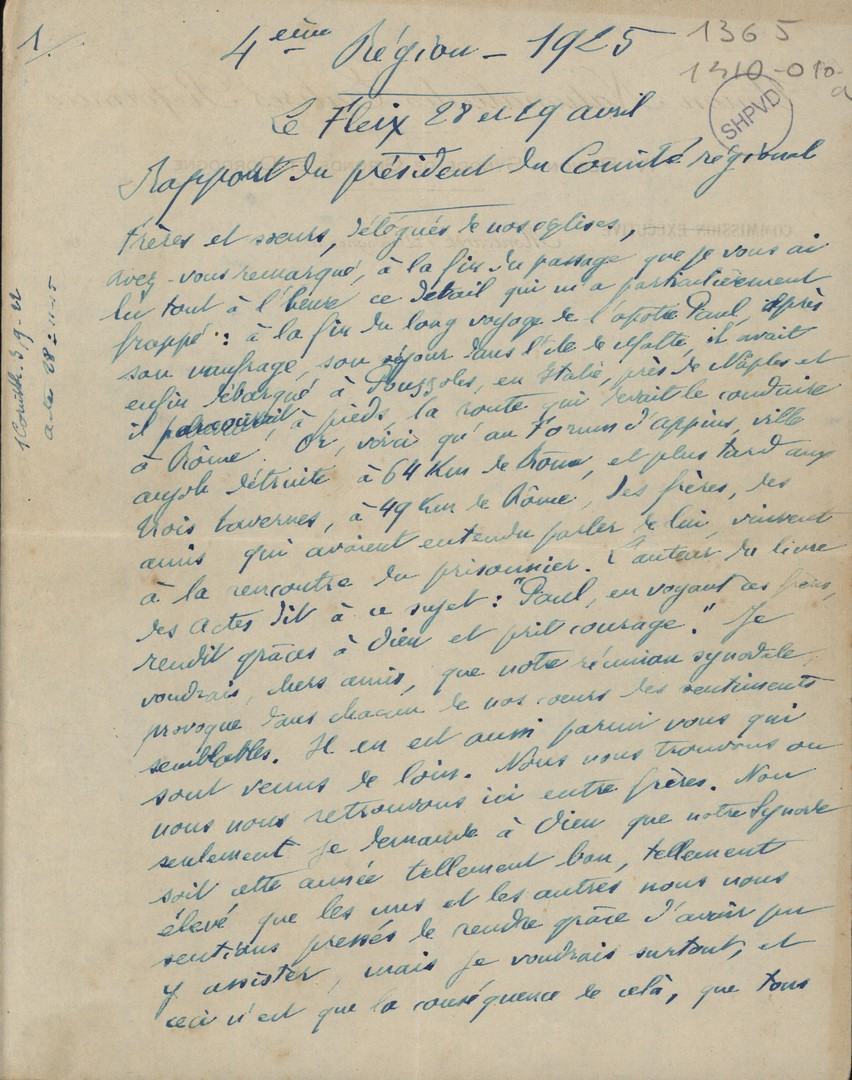 1/.
4ème Région - 1925
1365
1410-010-a
SHPVD
Le Fleix 28 et 29 avril
Rapport du président du Comité régional
COMMISSION EXECUTIVE
Frères et sœurs, délégués de nos églises,
avez-vous remarqué, à la fin du passage que je vous ai
lu tout à l'heure ce détail qui m'a particulièrement
frappé : à la fin du long voyage de l'apôtre Paul, après
son naufrage, son séjour dans l'île de Malte, il avait
enfin débarqué à Pouzzoles, en Italie, près de Naples et
il parcourait, à pieds, la route qui devait le conduire
à Rôme. Or, voici qu'au Forum d'Appius, ville
aujob détruite à 64 Km de Rôme, et plus tard aux
trois tavernes, à 49 Km de Rôme, des frères, des
amis qui avaient entendu parler de lui, vinrent
à la rencontre du prisonnier. L'auteur du livre
des Actes dit à ce sujet : "Paul, en voyant ces frères,
rendit grâces à Dieu et prit courage." Je
voudrais, chers amis, que notre réunion synodale,
provoque dans chacun de nos cœurs des sentiments
semblables. Il en est aussi parmi vous qui
sont venus de loin. Nous nous trouvons ou
nous nous retrouvons ici entre frères. Non
seulement je demande à Dieu que notre Synode
soit cette année tellement bon, tellement
élevé que les uns et les autres nous nous
sentions pressés de rendre grâce d'avoir pu
y assister, mais je voudrais surtout, et
ceci n'est que la conséquence de celà, que tous
1 Corinth. 3, 9-22
actes 28 = 11-15